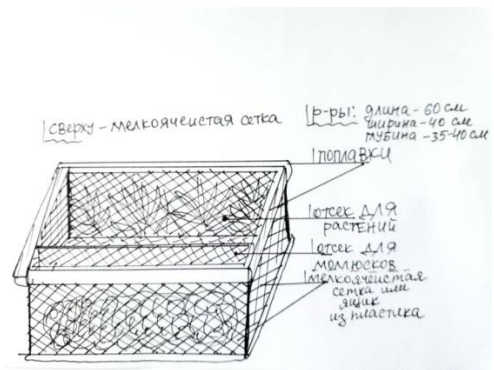 сверху - мелкоячеистая сетка
р-ры: длина - 60 см
ширина - 40 см
глубина - 35-40 см
поплавки
отсек для
растений
отсек для
моллюсков
мелкоячеистая
сетка или
ящик
из пластика